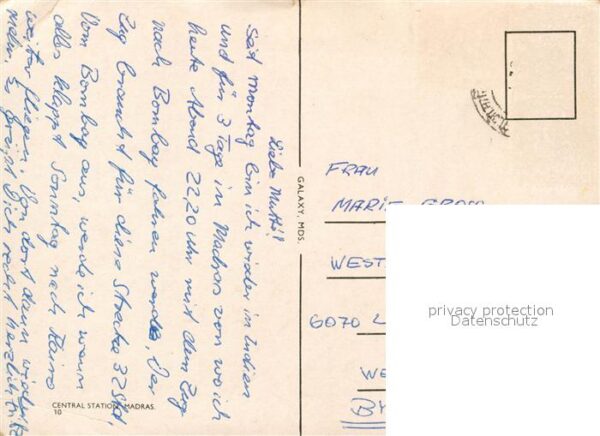 Liebe Mutti!
Seit Montag bin ich wieder in Indien
und für 3 Tage in Madras von wo ich
heute Abend 22.20 Uhr mit dem Zug
nach Bombay fahren werde. Der
Zug braucht für diese Strecke 32 Std.
Von Bombay aus, werde ich wenn
alles klappt Sonntag nach Kairo
weiter fliegen. Von dort dann wieder
mehr. Es grüßt Dich recht herzlich Fritz
CENTRAL STATION, MADRAS.
10
GALAXY, MDS.
FRAU
MARIE
WEST
6070 L
WE
privacy protection
Datenschutz